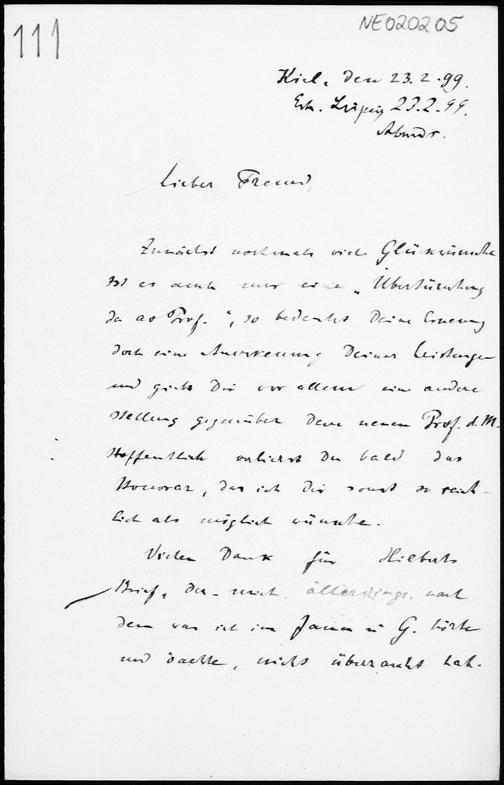 111
NE020205
Kiel, den 23.2.99.
Erh. Leipzig 23.2.99.
Abends.
Lieber Freund,
Zunächst nochmals viel Glückwünsche
Ist es auch nur eine „Übertünchung
da ao Prof.", so bedeutet Deine Ernennung
doch eine Anerkennung Deiner Leistungen
und giebt Dir vor allem eine andere
Stellung gegenüber dem neuen Prof. d. M.
Hoffentlich verlierst Du bald das
Honorar, das ich Dir sonst so reich-
lich als möglich wünsche.
Vielen Dank für Hilberts
Brief, der mich allerdings nach
dem was ich im Januar in G. hörte
und dachte, nicht überrascht hat.